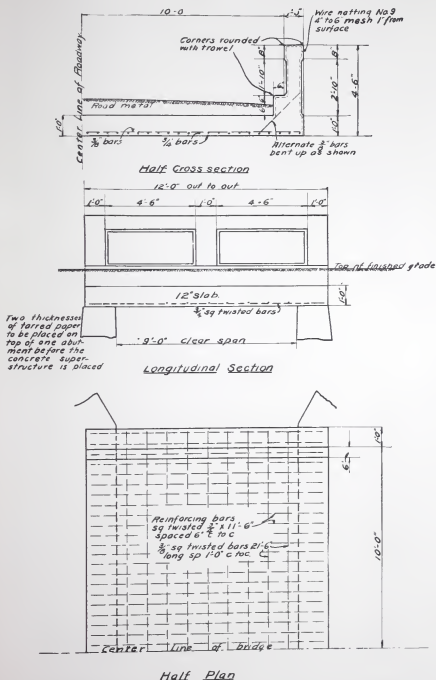 10-0
1'-3"
Wire netting No 9
4" to 6 mesh 1" from
surface
Corners rounded
with trowel
8"
8"
1'-10"
2'-10"
4'-6"
Center Line of Roadway
Road metal
6"
1'-0"
1'-0"
bars
bars
Alternate bars
bent up as shown
Half Cross section
12'-0" out to out
1'-0"
4'-6"
1'-0"
4-6"
1'-0"
Top of finished grade
12" slab.
1'-0"
sq twisted bars
Two thicknesses
of tarred paper
to be placed on
top of one abut-
ment before the
concrete super-
structure is placed
9'-0" clear span
Longitudinal Section
1'-0"
6"
Reinforcing bars
sq twisted x 11'-6"
spaced 6" c to c
sq twisted bars 21'-6
long sp 1'-0" c to c
10'-0"
Center Line of bridge
Half Plan